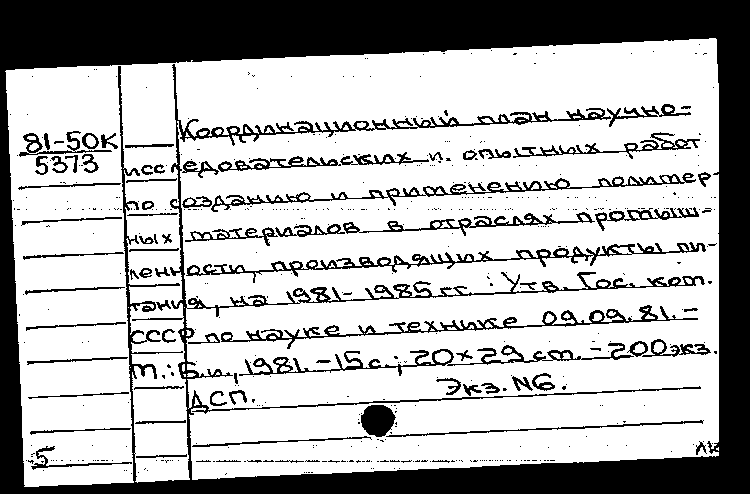 81-50К
5373
Координационный план научно-
исследовательских и опытных работ
по созданию и применению полимер-
ных материалов в отраслях промыш-
ленности, производящих продукты пи-
тания, на 1981-1985 гг. : Утв. Гос. ком.
СССР по науке и технике 09.09.81. -
М.: Б.и., 1981. - 15 с.; 20×29 см. - 200 экз.
ДСП. Экз. N6.
5